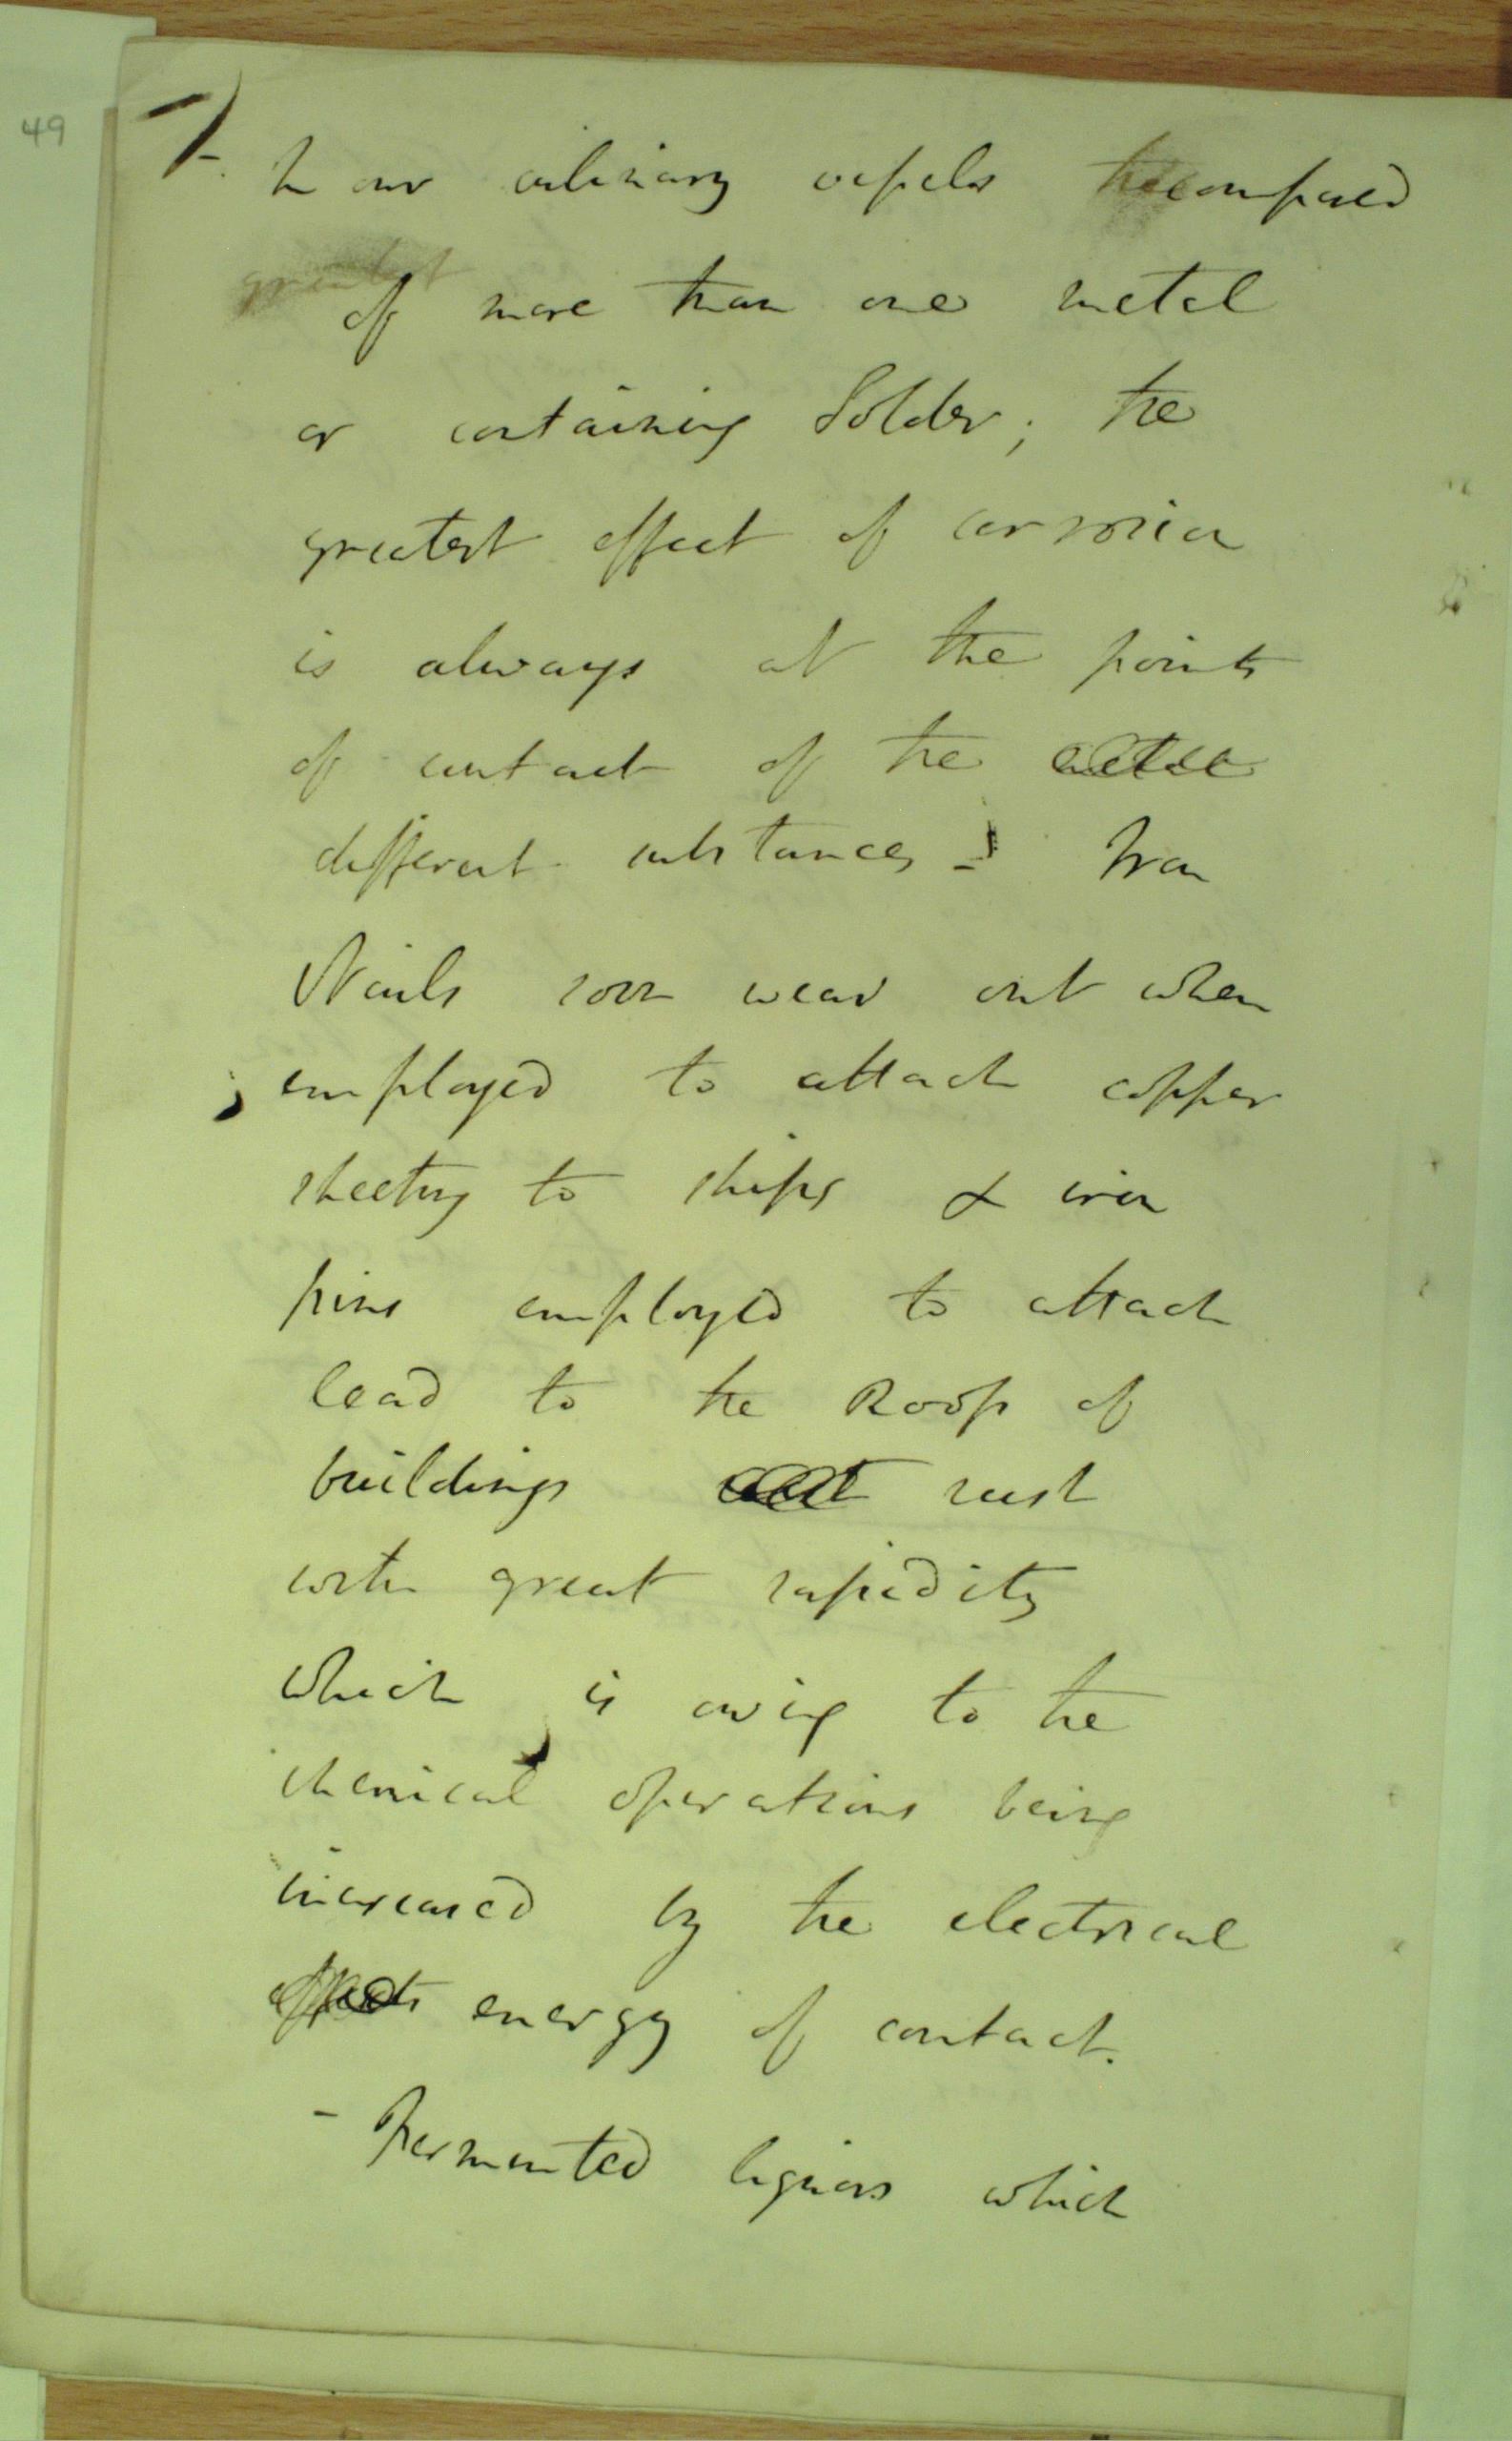 49
7. In our culinary vessels composed
of more than one metal
or containing Solder; the
greatest effect of corrosion
is always at the points
of contact of the
different substances - Iron
Nails soon wear out when
employed to attach copper
sheeting to ships & iron
pins employed to attach
lead to the Roofs of
buildings rust
with great rapidity
which is owing to the
chemical operations being
increased by the electrical
effects energy of contact.
- Fermented liquors which